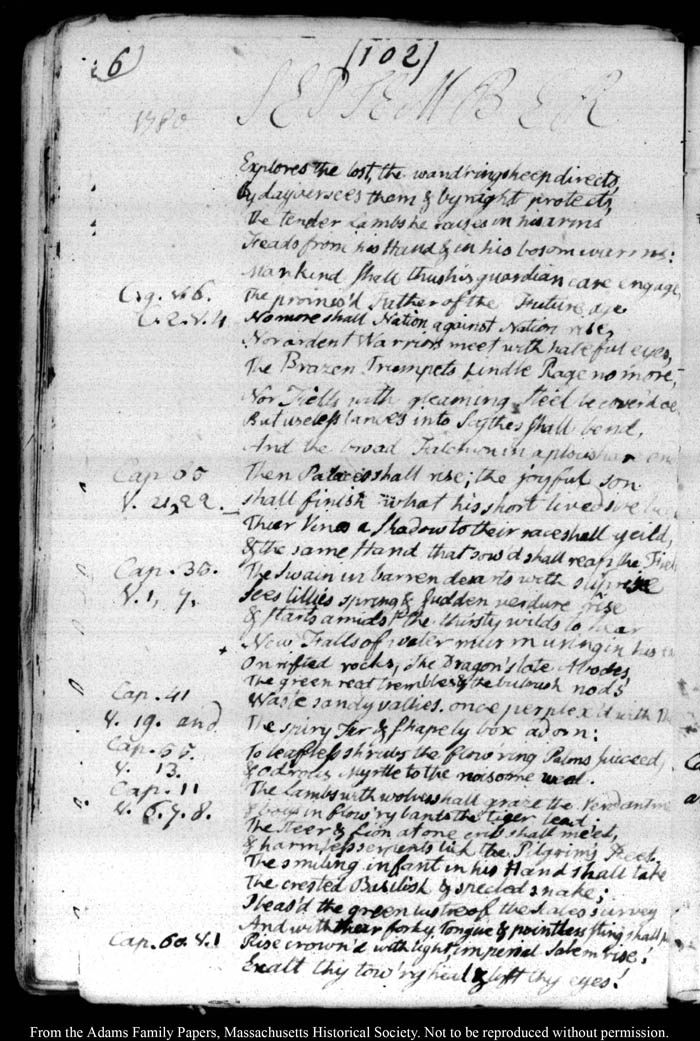 6) [102]
1780 SEPTEMBER
Explores the lost, the wand'ring sheep directs,
by day oversees them & by night protects,
The tender Lambs he raises in his arms
Feads from his Hand & in his bosom warms:
Mankind shall thus his guardian care engage,
C. 9. v. 6. The promis'd Father of the Future age
C. 2. v. 4. No more shall Nation against Nation rise,
Nor ardent Warriors meet with hateful eyes,
The Brazen Trumpets kindle Rage no more,
Nor Fields with gleaming Steel be cover'd
But useless lances into Scythes shall bend,
And the broad Falchion in a plowshare
Cap. 65 Then Palaces shall rise; the joyful son
V. 21, 22. shall finish what his short lived sire
Their Vines a Shadow to their race shall yeild,
& the same Hand that sow'd shall reap the
Cap. 35. The Swain in barren desarts with surprise
V. 1, 7. sees lillies spring & sudden verdure rise
& starts amidst the thirsty wilds to hear
+ New Falls of water murmuring in his
On rifted rocks, the Dragon's late Abodes,
The green reed trembles & the bulrush nods
Cap. 41 Waste sandy vallies, once perplex'd with
V. 19. and The spiry Fir & shapely box adorn:
Cap. 55. To leafless shrubs the flow'ring Palms succeed,
V. 13. & od'rous Myrtle to the noisome weed.
Cap. 11 The Lambs with wolves shall graze the Verdant
V. 6. 7. 8. & boys in flow'ry bands the tiger lead;
The Steer & Lion at one crib shall meet,
& harmless serpents lick the Pilgrim's Feet.
The smiling infant in his Hand shall take
The crested Basilisk & specled snake;
Pleas'd the green lustre of the scales survey
And with their forky tongue & pointless sting shall
Cap. 60. V. 1 Rise crown'd with light, imperial Salem rise!
Exalt thy tow'ry head & lift thy eyes!
From the Adams Family Papers, Massachusetts Historical Society. Not to be reproduced without permission.